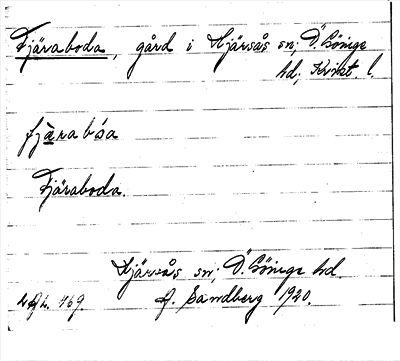 Fjäraboda, gård i Hjärsås sn; Ö. Göinge
hd, Krist. l.
fjàrabósa
Fjäraboda.
Hjärsås sn; Ö. Göinge hd.
469 A. Sandberg 1920.